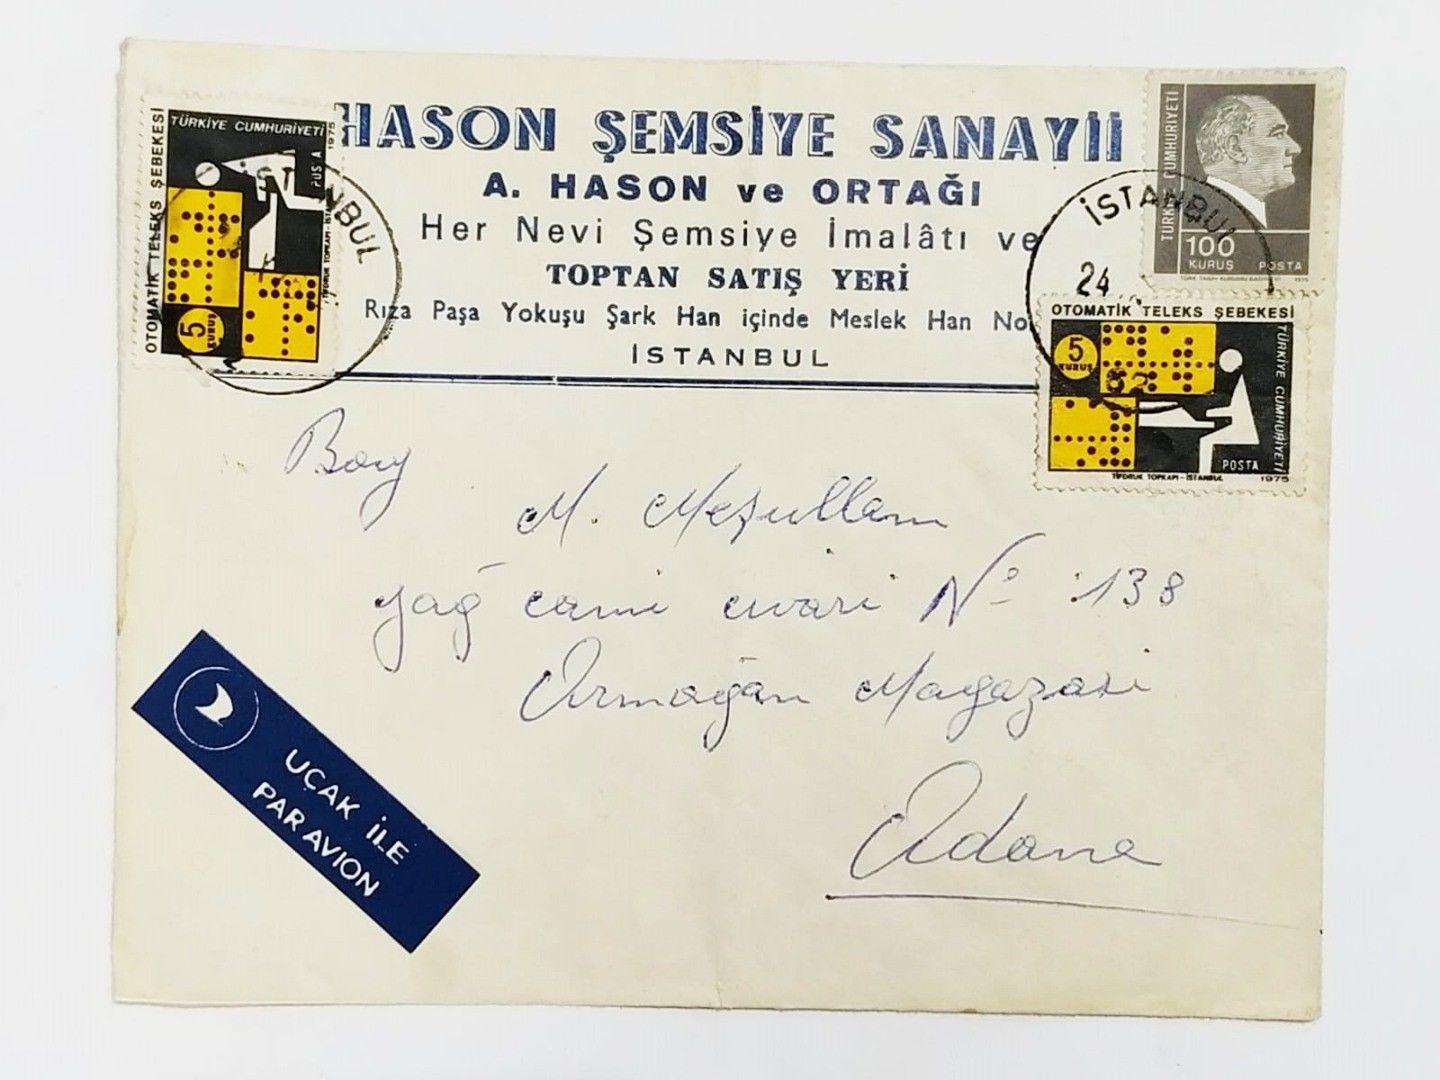 HASON ŞEMSİYE SANAYİİ
A. HASON ve ORTAĞI
Her Nevi Şemsiye İmalâtı ve
TOPTAN SATIŞ YERİ
Rıza Paşa Yokuşu Şark Han içinde Meslek Han No
İSTANBUL
OTOMATİK TELEKS ŞEBEKESİ
TÜRKİYE CUMHURİYETİ
POSTA
5
KURUŞ
1975
TİFDRUK TOPKAPI-İSTANBUL
İSTANBUL
TÜRKİYE CUMHURİYETİ
100
KURUŞ
POSTA
1975
İSTANBUL
24
OTOMATİK TELEKS ŞEBEKESİ
5
KURUŞ
TÜRKİYE CUMHURİYETİ
POSTA
TİFDRUK TOPKAPI-İSTANBUL
1975
Bay
M. Meşullam
yağ cami civari No 138
Armağan Magazasi
Adana
UÇAK İLE
PAR AVION